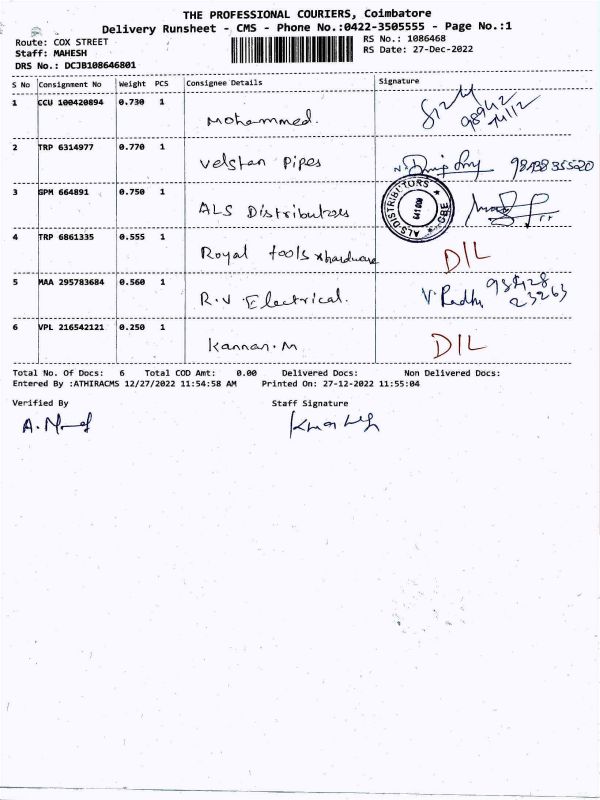 THE PROFESSIONAL COURIERS, Coimbatore
Delivery Runsheet - CMS - Phone No.:0422-3505555 - Page No.:1
Route: COX STREET
RS No.: 1086468
Staff: MAHESH
RS Date: 27-Dec-2022
DRS No.: DCJB108646801
S No Consignment No Weight PCS Consignee Details Signature
1 CCU 100420894 0.730 1
Mohammed.
98942
74112
2 TRP 6314977 0.770 1
Velstan Pipes
98438 35520
3 GPM 664891 0.750 1
ALS Distributors
ALS DISTRIBUTORS ★ CBE ★
641 008
4 TRP 6861335 0.555 1
Royal tools & hardware
D/L
5 MAA 295783684 0.560 1
R.V Electrical.
V. Radhi
23263
6 VPL 216542121 0.250 1
Kannan.M
D/L
Total No. Of Docs: 6 Total COD Amt: 0.00 Delivered Docs: Non Delivered Docs:
Entered By :ATHIRACMS 12/27/2022 11:54:58 AM Printed On: 27-12-2022 11:55:04
Verified By Staff Signature